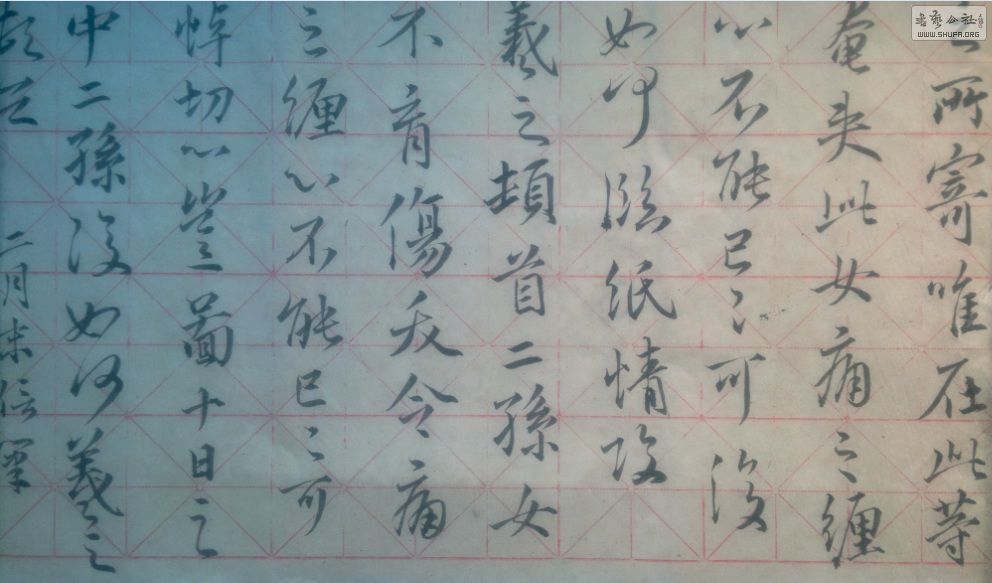 所寄唯在此等
奄失此女痛之纏
心不能已〻可復
如何臨紙情
羲之頓首二孫女
不育傷夭令痛
之纏心不能已〻可
悼切心豈圖十日之
中二孫沒如何羲之
頓首 二月末信筆
書藝公社
WWW.SHUFA.ORG